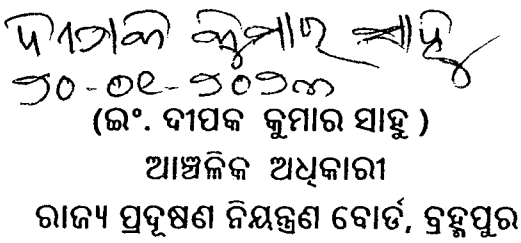 ଦୀପକ କୁମାର ସାହୁ
(ଇଂ. ଦୀପକ କୁମାର ସାହୁ )
ଆଞ୍ଚଳିକ ଅଧିକାରୀ
ରାଜ୍ୟ ପ୍ରଦୂଷଣ ନିୟନ୍ତ୍ରଣ ବୋର୍ଡ, ବ୍ରହ୍ମପୁର